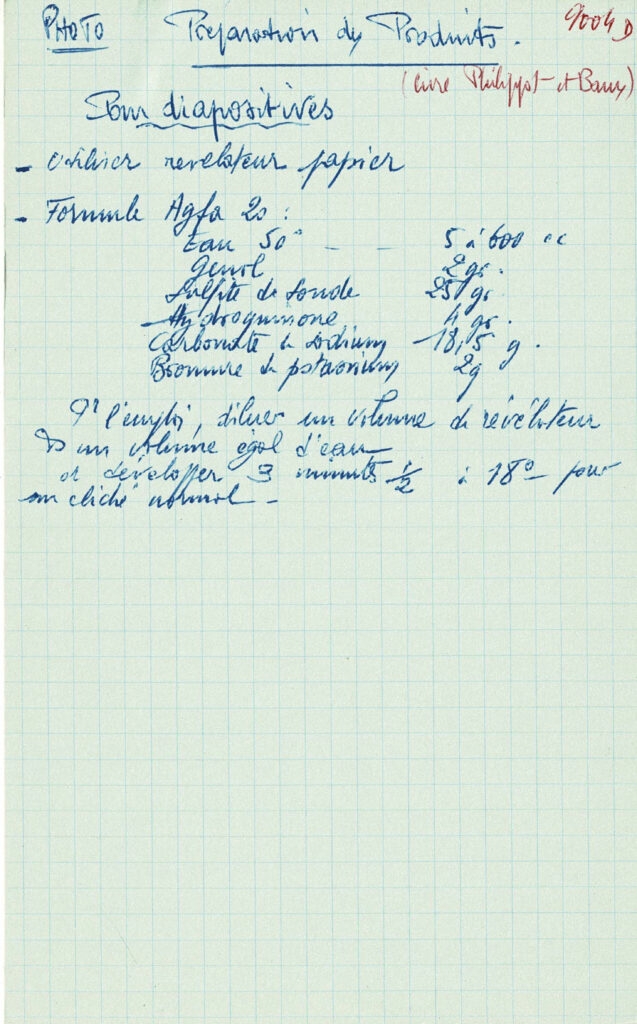 PHOTO Préparation des Produits. 9004 D
(livre Philippot et Baux)
Pour diapositives
- Utiliser révélateur papier
- Formule Agfa 20 :
Eau 50° - - 5 à 600 cc
Génol 2 gr.
Sulfite de soude 25 gr.
Hydroquinone 4 gr.
Carbonate de sodium 18,5 g.
Bromure de potassium 2g
A l'emploi, diluer un volume de révélateur
ds un volume égal d'eau
et développer 3 minutes 1/2 à 18° pour
un cliché normal -